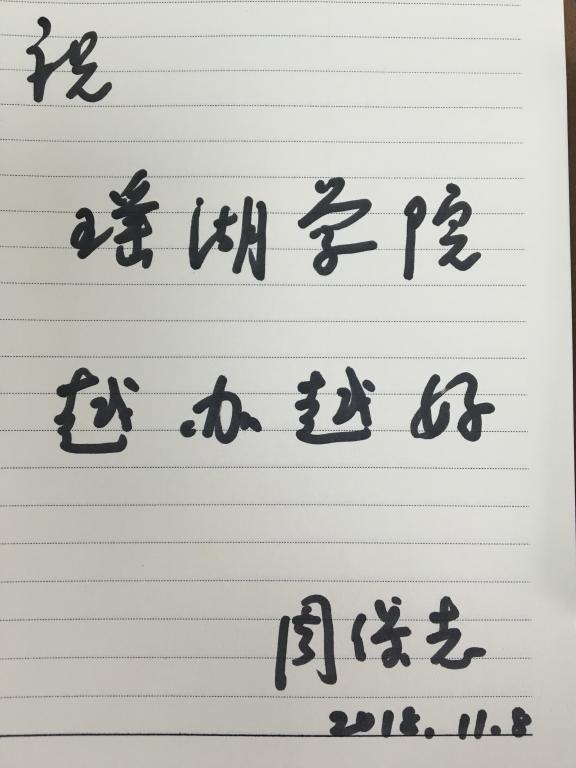 祝
瑶湖学院
越办越好
周保志
2018.11.8